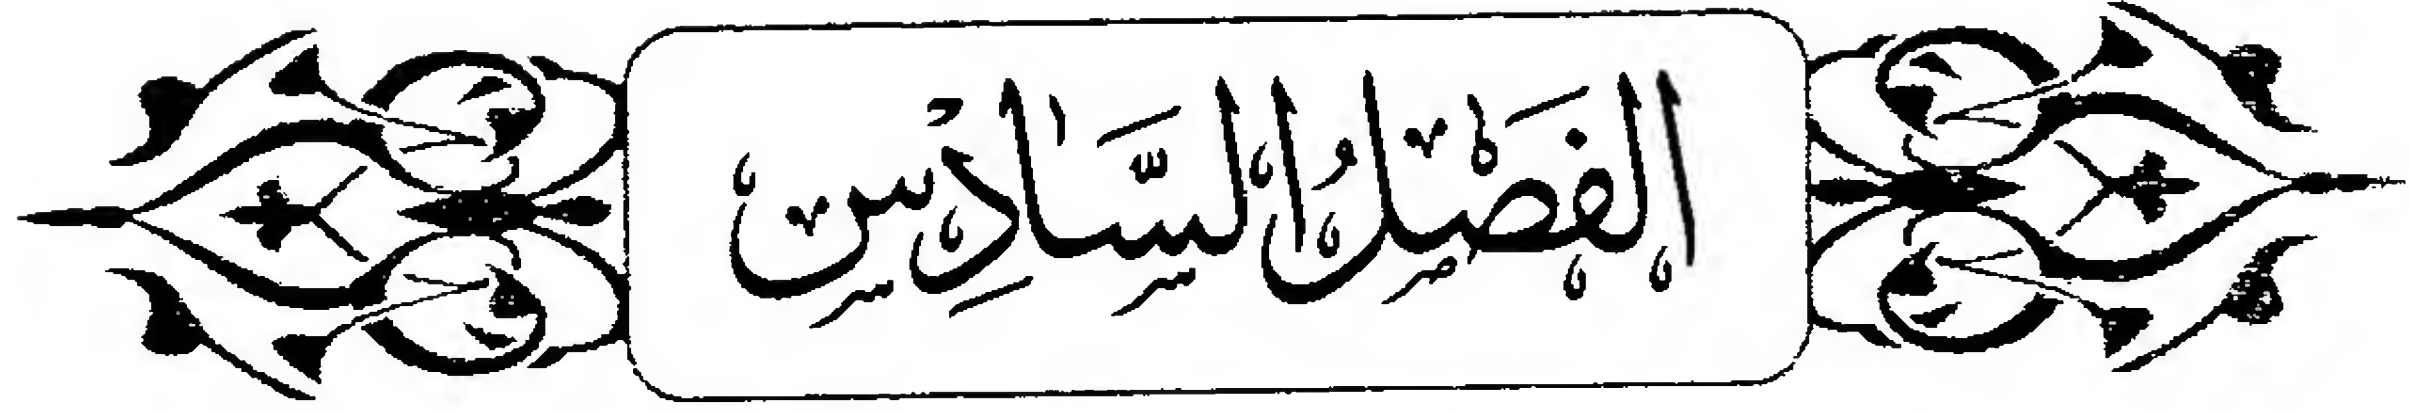 الفَصْلُ السَّادِسْ